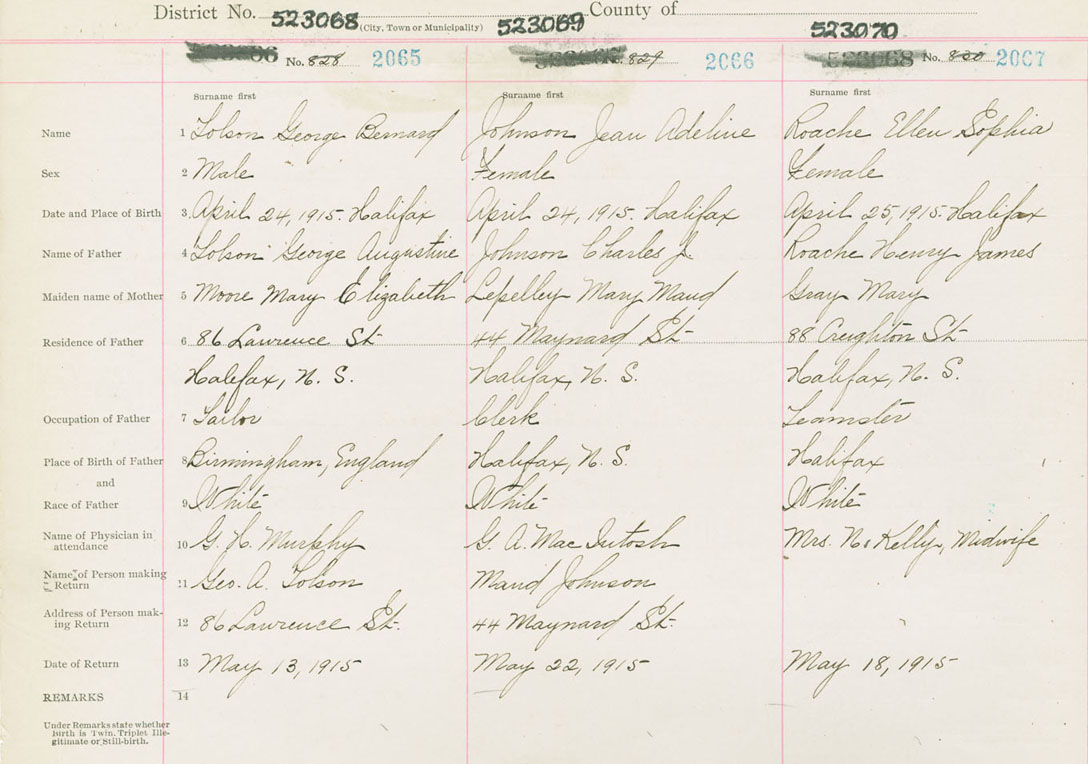 District No. 523068 (City, Town or Municipality) 523069 County of 523070
No. 828 2065 No. 829 2066 No. 2067
Surname first Surname first Surname first
Name 1 Tolson George Bernard Johnson Jean Adeline Roache Ellen Sophia
Sex 2 Male Female Female
Date and Place of Birth 3 April 24, 1915. Halifax April 24, 1915. Halifax April 25, 1915. Halifax
Name of Father 4 Tolson George Augustine Johnson Charles J. Roache Henry James
Maiden name of Mother 5 Moore Mary Elizabeth Lepelley Mary Maud Gray Mary
Residence of Father 6 86 Lawrence St 44 Maynard St 88 Creighton St
Halifax, N. S. Halifax, N. S. Halifax, N. S.
Occupation of Father 7 Tailor Clerk Teamster
Place of Birth of Father 8 Birmingham, England Halifax, N. S. Halifax
and
Race of Father 9 White White White
Name of Physician in
attendance 10 G. H. Murphy G. A. MacIntosh Mrs. N. Kelly, Midwife
Name of Person making
Return 11 Geo. A. Tolson Maud Johnson
Address of Person mak-
ing Return 12 86 Lawrence St. 44 Maynard St.
Date of Return 13 May 13, 1915 May 22, 1915 May 18, 1915
REMARKS 14
Under Remarks state whether
Birth is Twin, Triplet Ille-
gitimate or Still-birth.